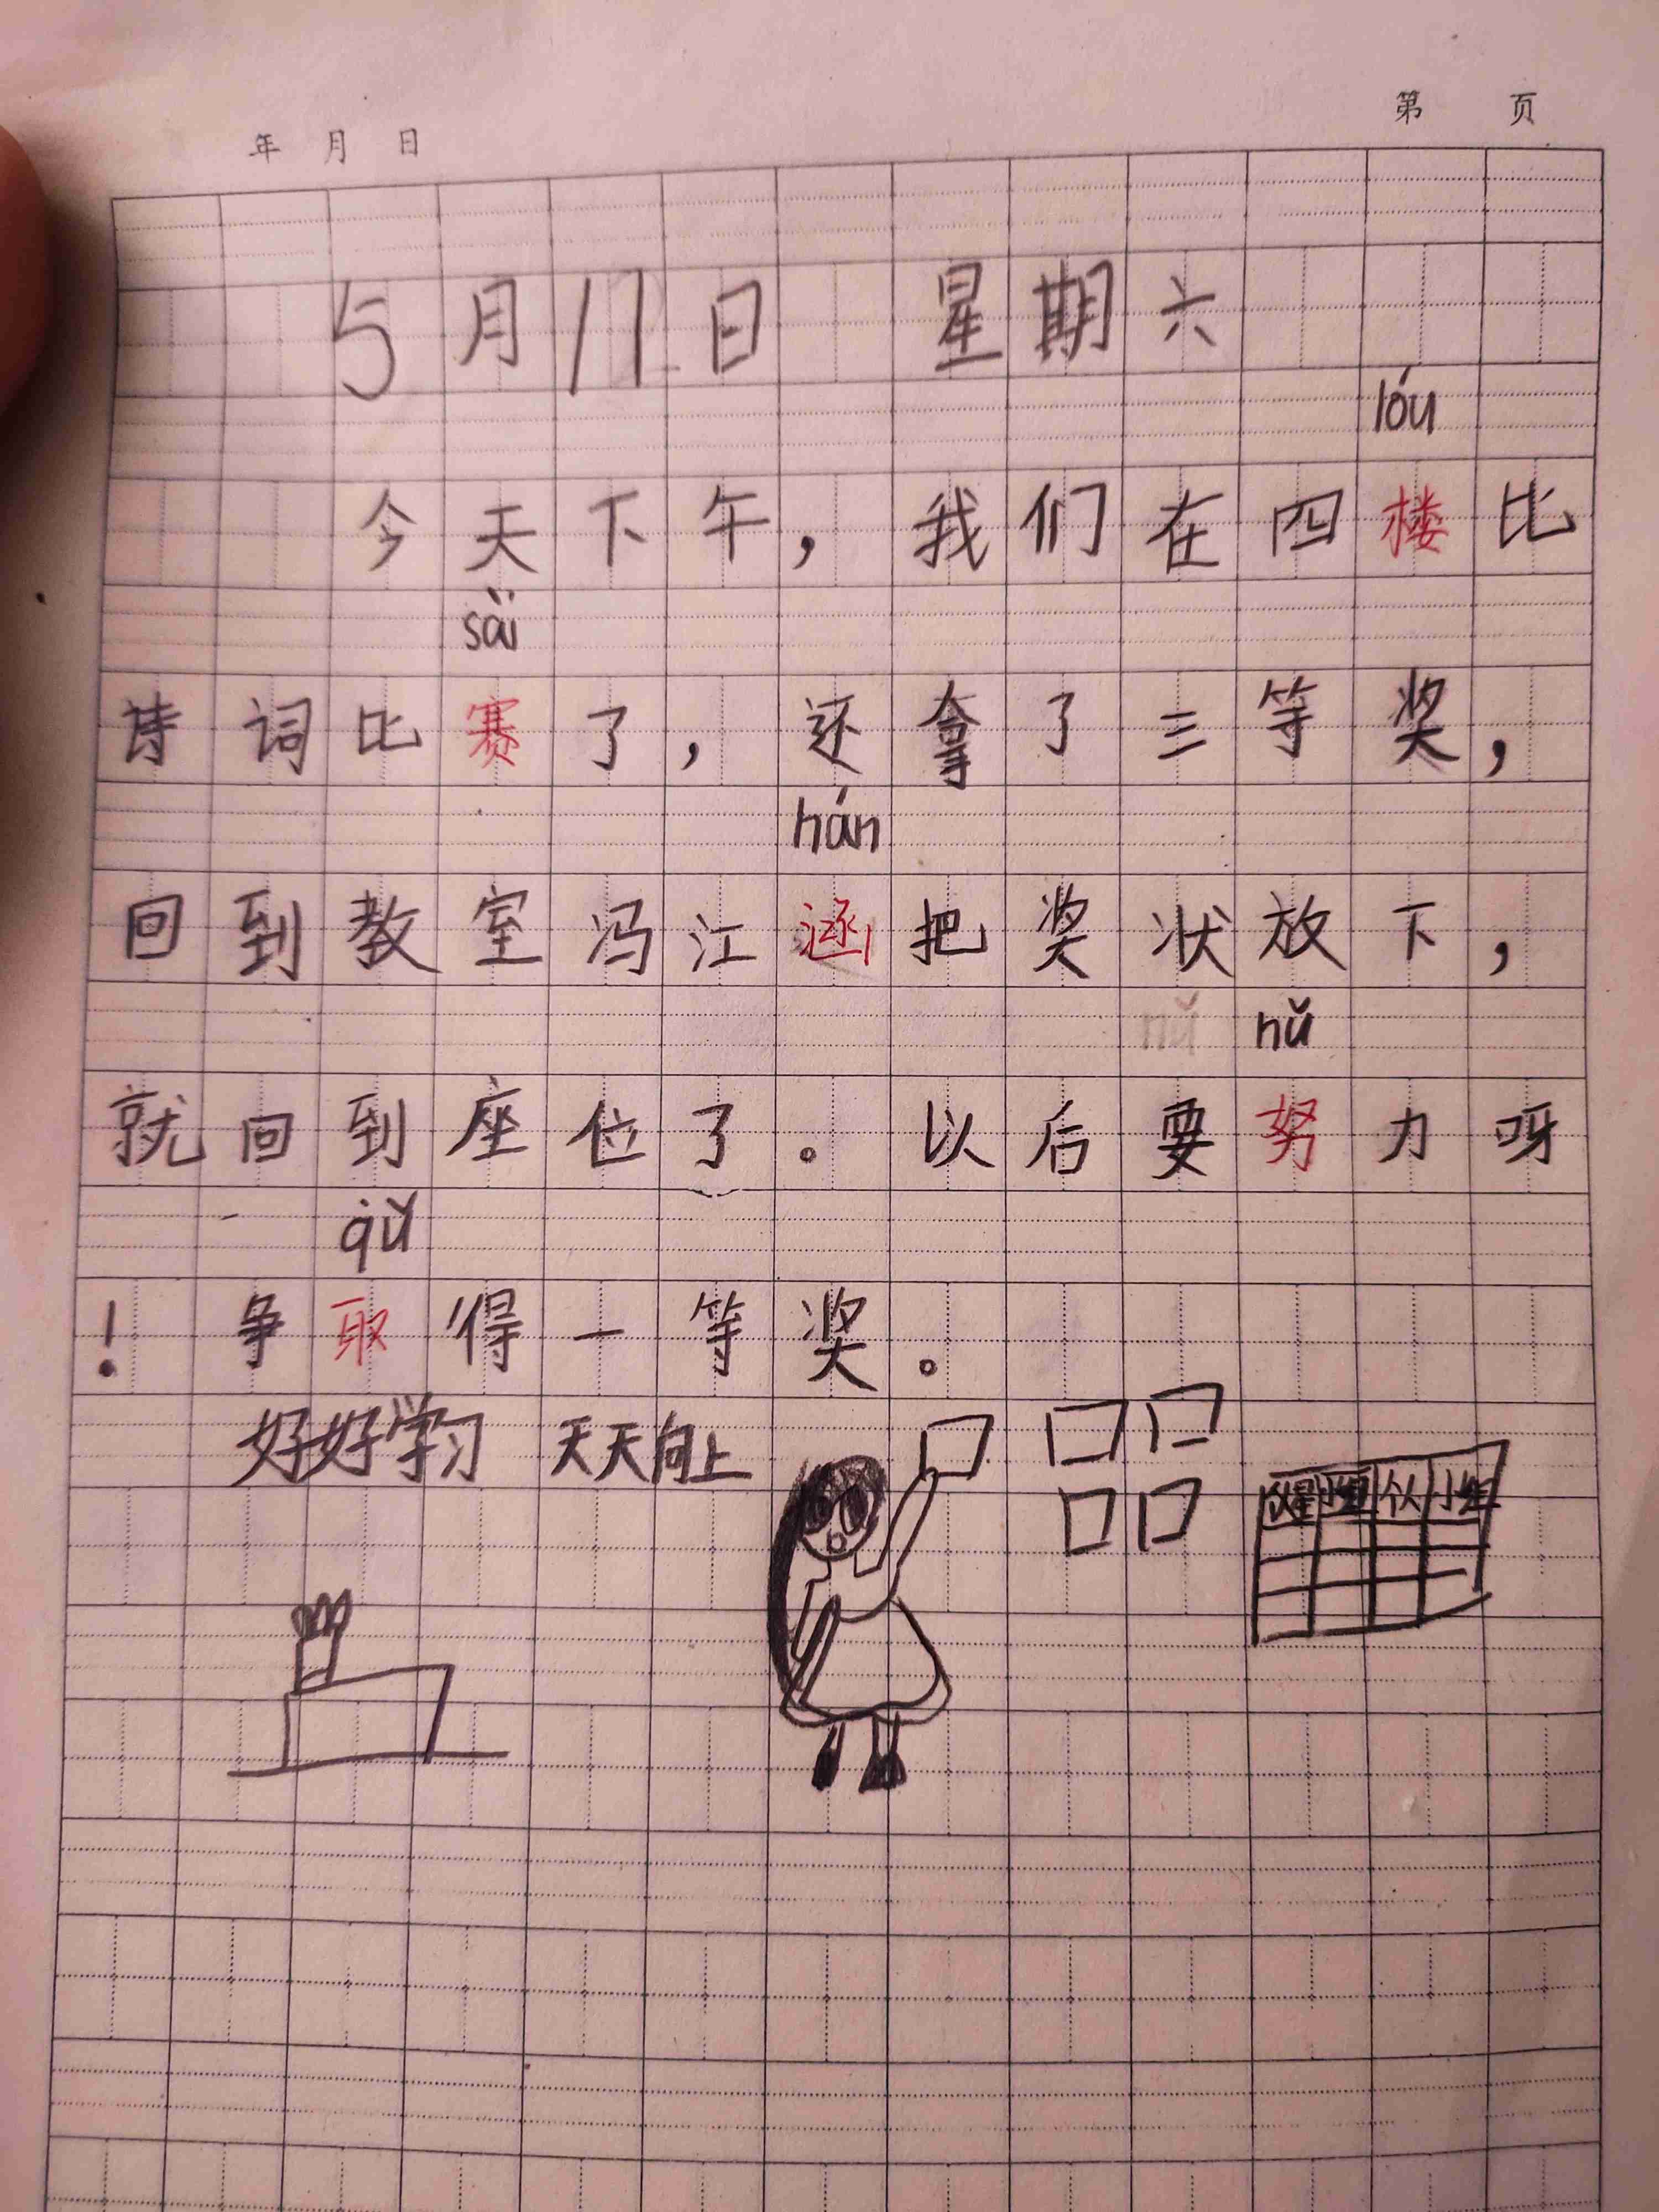 年 月 日
第 页
5月11日 星期六
lóu
今天下午，我们在四楼比
sài
诗词比赛了，还拿了三等奖，
hán
回到教室冯江涵把奖状放下，
nǔ nǔ
就回到座位了。以后要努力呀
qǔ
！争取得一等奖。
好好学习 天天向上